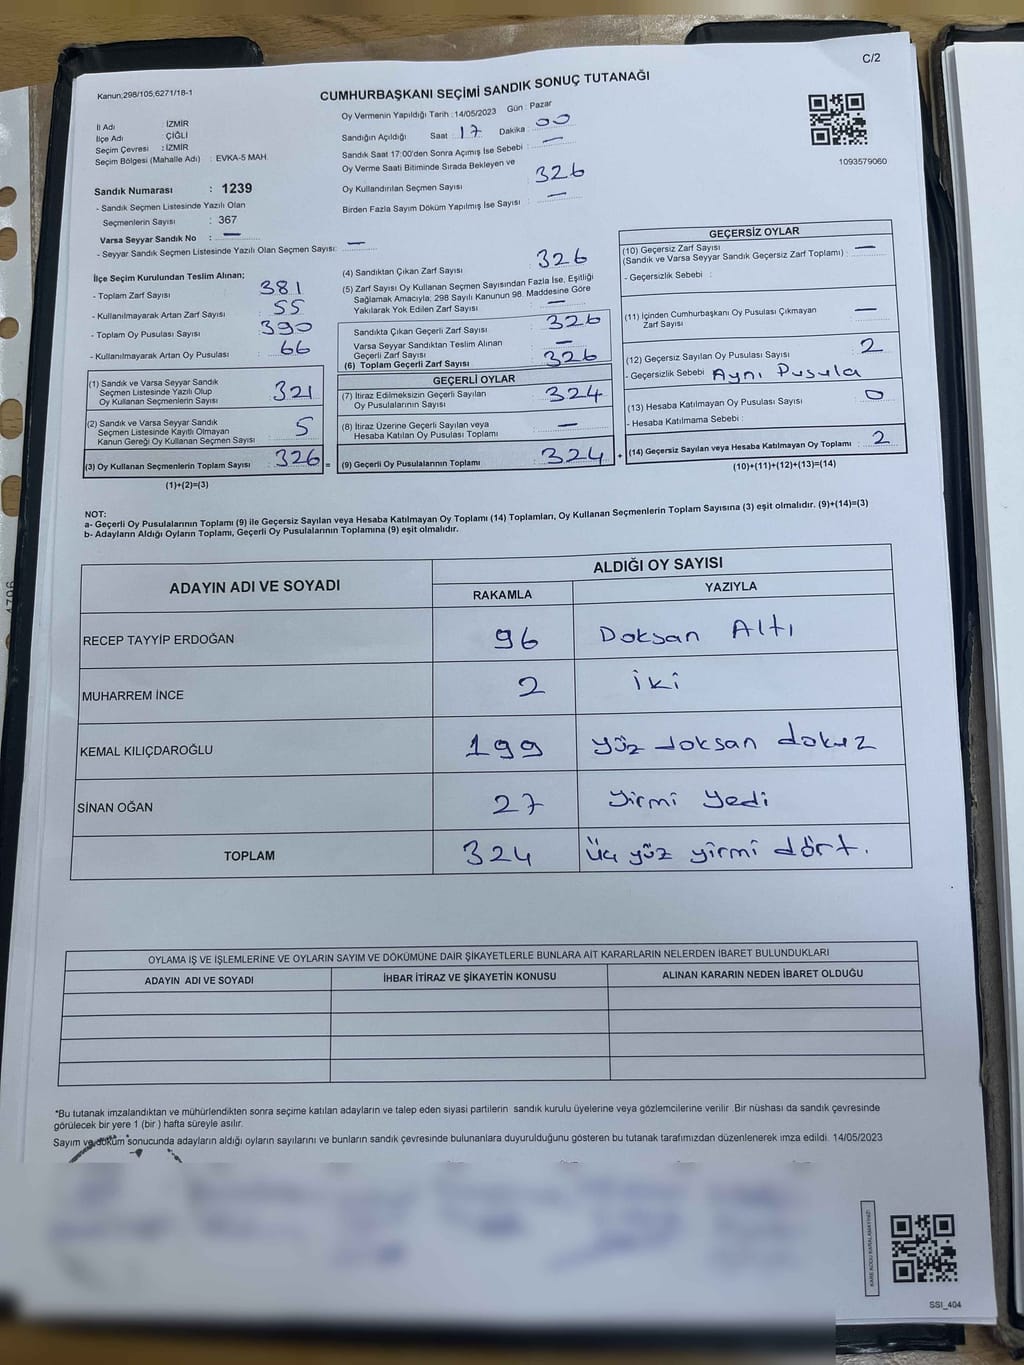 C/2
Kanun;298/105,6271/18-1
CUMHURBAŞKANI SEÇİMİ SANDIK SONUÇ TUTANAĞI
İl Adı : İZMİR
İlçe Adı : ÇİĞLİ
Seçim Çevresi : İZMİR
Seçim Bölgesi (Mahalle Adı) : EVKA-5 MAH.
Oy Vermenin Yapıldığı Tarih : 14/05/2023 Gün : Pazar
Sandığın Açıldığı Saat : 17 Dakika : 00
Sandık Saat 17:00'den Sonra Açımış İse Sebebi : —
Oy Verme Saati Bitiminde Sırada Bekleyen ve
Oy Kullandırılan Seçmen Sayısı : 326
Birden Fazla Sayım Döküm Yapılmış İse Sayısı : —
1093579060
Sandık Numarası : 1239
- Sandık Seçmen Listesinde Yazılı Olan
Seçmenlerin Sayısı : 367
Varsa Seyyar Sandık No : —
- Seyyar Sandık Seçmen Listesinde Yazılı Olan Seçmen Sayısı: —
İlçe Seçim Kurulundan Teslim Alınan;
- Toplam Zarf Sayısı : 381
- Kullanılmayarak Artan Zarf Sayısı : 55
- Toplam Oy Pusulası Sayısı : 390
- Kullanılmayarak Artan Oy Pusulası : 66
(1) Sandık ve Varsa Seyyar Sandık
Seçmen Listesinde Yazılı Olup
Oy Kullanan Seçmenlerin Sayısı : 321
(2) Sandık ve Varsa Seyyar Sandık
Seçmen Listesinde Kayıtlı Olmayan
Kanun Gereği Oy Kullanan Seçmen Sayısı : 5
(3) Oy Kullanan Seçmenlerin Toplam Sayısı : 326 =
(1)+(2)=(3)
(4) Sandıktan Çıkan Zarf Sayısı : 326
(5) Zarf Sayısı Oy Kullanan Seçmen Sayısından Fazla İse, Eşitliği
Sağlamak Amacıyla; 298 Sayılı Kanunun 98. Maddesine Göre
Yakılarak Yok Edilen Zarf Sayısı : —
Sandıkta Çıkan Geçerli Zarf Sayısı : 326
Varsa Seyyar Sandıktan Teslim Alınan
Geçerli Zarf Sayısı : —
(6) Toplam Geçerli Zarf Sayısı : 326
GEÇERLİ OYLAR
(7) İtiraz Edilmeksizin Geçerli Sayılan
Oy Pusulalarının Sayısı : 324
(8) İtiraz Üzerine Geçerli Sayılan veya
Hesaba Katılan Oy Pusulası Toplamı : —
(9) Geçerli Oy Pusulalarının Toplamı : 324 +
GEÇERSİZ OYLAR
(10) Geçersiz Zarf Sayısı
(Sandık ve Varsa Seyyar Sandık Geçersiz Zarf Toplamı) : —
- Geçersizlik Sebebi :
(11) İçinden Cumhurbaşkanı Oy Pusulası Çıkmayan
Zarf Sayısı : —
(12) Geçersiz Sayılan Oy Pusulası Sayısı : 2
- Geçersizlik Sebebi : Aynı Pusula
(13) Hesaba Katılmayan Oy Pusulası Sayısı : 0
- Hesaba Katılmama Sebebi :
(14) Geçersiz Sayılan veya Hesaba Katılmayan Oy Toplamı : 2
(10)+(11)+(12)+(13)=(14)
NOT:
a- Geçerli Oy Pusulalarının Toplamı (9) ile Geçersiz Sayılan veya Hesaba Katılmayan Oy Toplamı (14) Toplamları, Oy Kullanan Seçmenlerin Toplam Sayısına (3) eşit olmalıdır. (9)+(14)=(3)
b- Adayların Aldığı Oyların Toplamı, Geçerli Oy Pusulalarının Toplamına (9) eşit olmalıdır.
ADAYIN ADI VE SOYADI ALDIĞI OY SAYISI
RAKAMLA YAZIYLA
RECEP TAYYİP ERDOĞAN 96 Doksan Altı
MUHARREM İNCE 2 iki
KEMAL KILIÇDAROĞLU 199 yüz doksan dokuz
SİNAN OĞAN 27 yirmi yedi
TOPLAM 324 üç yüz yirmi dört.
OYLAMA İŞ VE İŞLEMLERİNE VE OYLARIN SAYIM VE DÖKÜMÜNE DAİR ŞİKAYETLERLE BUNLARA AİT KARARLARIN NELERDEN İBARET BULUNDUKLARI
ADAYIN ADI VE SOYADI İHBAR İTİRAZ VE ŞİKAYETİN KONUSU ALINAN KARARIN NEDEN İBARET OLDUĞU
*Bu tutanak imzalandıktan ve mühürlendikten sonra seçime katılan adayların ve talep eden siyasi partilerin sandık kurulu üyelerine veya gözlemcilerine verilir .Bir nüshası da sandık çevresinde
görülecek bir yere 1 (bir ) hafta süreyle asılır.
Sayım ve döküm sonucunda adayların aldığı oyların sayılarını ve bunların sandık çevresinde bulunanlara duyurulduğunu gösteren bu tutanak tarafımızdan düzenlenerek imza edildi. 14/05/2023
KARE KODU KARALAMAYINIZ!
SSİ_404